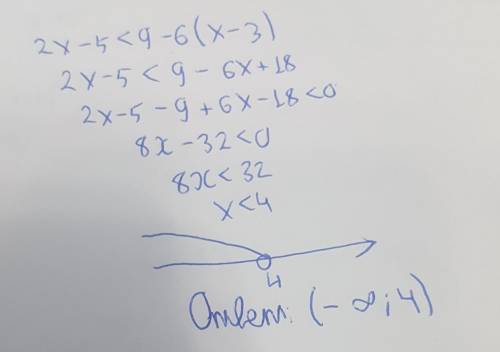 2x-5<9-6(x-3)
2x-5<9-6x+18
2x-5-9+6x-18<0
8x-32<0
8x<32
x<4
4
Ответ: (-∞;4)